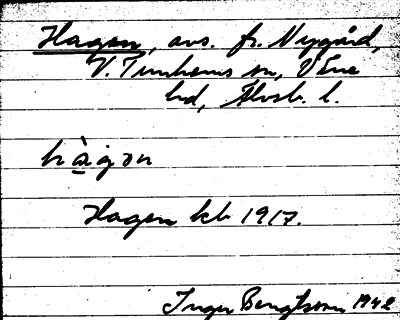 Hagen, avs. fr. Nygård,
V. Tunhems sn, Väne
hd, Älvsb. l.
hàgɔn
Hagen kb 1917.
Inger Bengtsson 1942